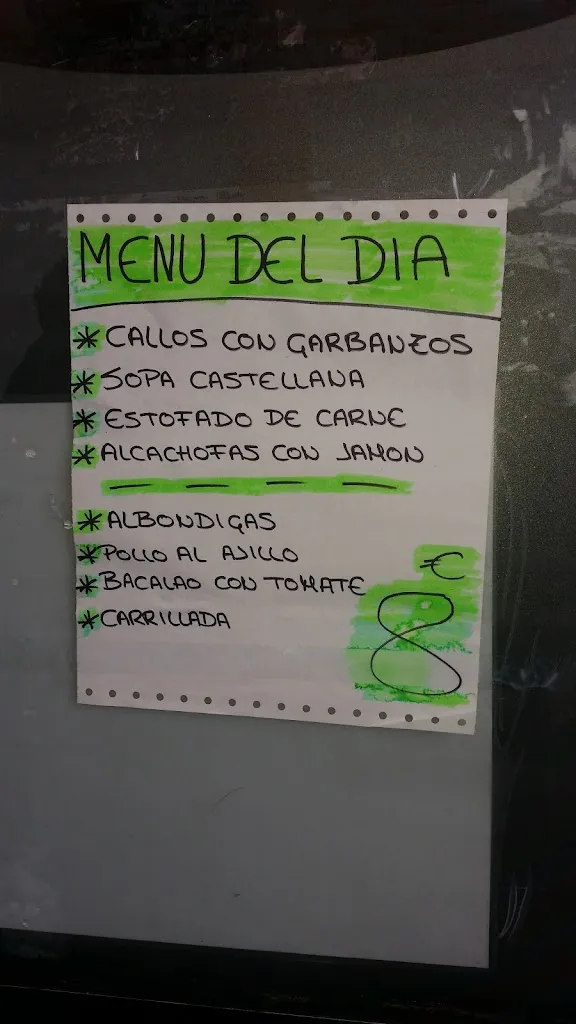 MENU DEL DIA
* CALLOS CON GARBANZOS
* SOPA CASTELLANA
* ESTOFADO DE CARNE
* ALCACHOFAS CON JAMON
* ALBONDIGAS
* POLLO AL AJILLO
* BACALAO CON TOMATE
* CARRILLADA
€
8